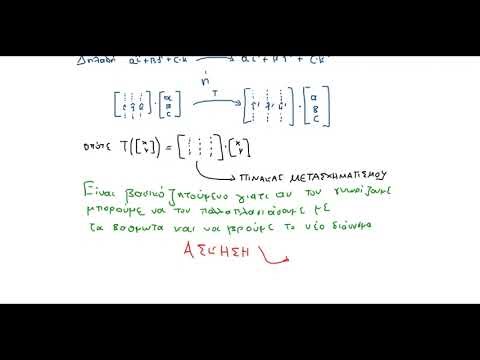 Δηλαδή aî+Bĵ+C·k̂ → aî'+Bĵ'+C·k̂'
ή
[î ĵ k̂]·[a B C] T→ [î' ĵ' k̂']·[a B C]
οπότε T([x y]) = [ ]·[x y]
→ ΠΙΝΑΚΑΣ ΜΕΤΑΣΧΗΜΑΤΙΣΜΟΥ
Είναι βασικό ζητούμενο γιατι αν τον γνωρίζουμε
μπορούμε να τον πολλαπλασιάσουμε με
τα βαθμωτα και να βρούμε το νέο διάνυσμα
ΑΣΚΗΣΗ